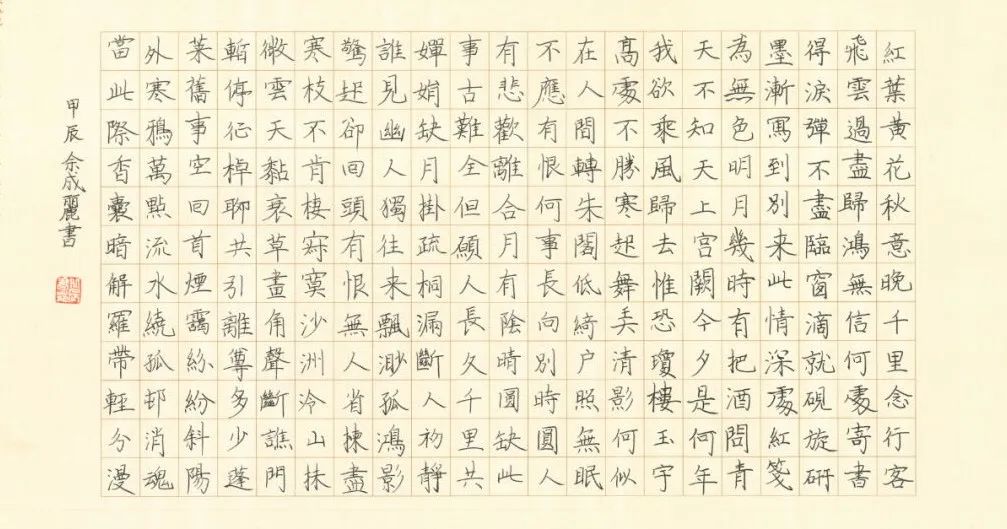 紅葉黃花秋意晚千里念行客
飛雲過盡歸鴻無信何處寄書
得淚彈不盡臨窗滴就硯旋研
墨漸寫到別来此情深處紅箋
為無色明月幾時有把酒問青
天不知天上宮闕今夕是何年
我欲乘風歸去惟恐瓊樓玉宇
高處不勝寒起舞弄清影何似
在人間轉朱閣低綺户照無眠
不應有恨何事長向別時圓人
有悲歡離合月有陰晴圓缺此
事古難全但願人長久千里共
嬋娟缺月掛疏桐漏斷人初靜
誰見幽人獨往来飄渺孤鴻影
驚起卻回頭有恨無人省揀盡
寒枝不肯棲寂寞沙洲冷山抹
微雲天黏衰草畫角聲斷譙門
暫停征棹聊共引離尊多少蓬
萊舊事空回首煙靄紛紛斜陽
外寒鴉萬點流水繞孤邨消魂
當此際香囊暗解羅帶輕分漫
甲辰余成麗書